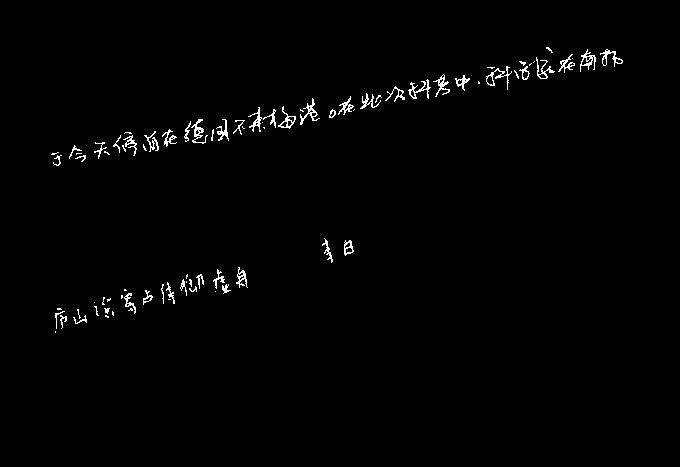 于今天停泊在德国不来梅港。在此次科考中，科学家在南极
李白
庐山谣寄卢侍御虚舟